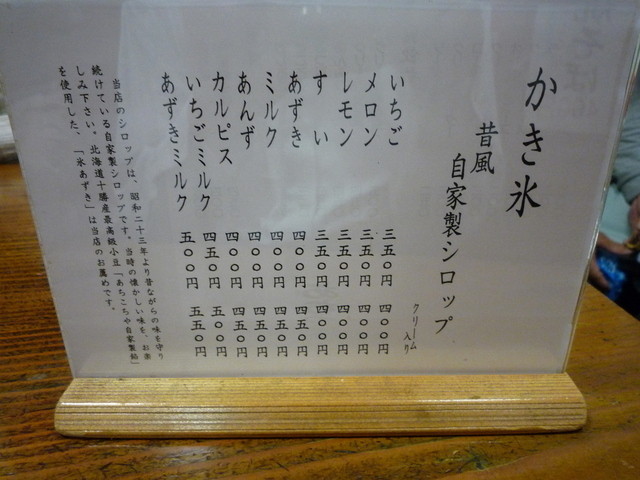 かき氷
昔風
自家製シロップ
クリーム
入り
いちご 三五〇円 四〇〇円
メロン 三五〇円 四〇〇円
レモン 三五〇円 四〇〇円
すい 三五〇円 四〇〇円
あずき 四〇〇円 四五〇円
ミルク 四〇〇円 四五〇円
あんず 四〇〇円 四五〇円
カルピス 四〇〇円 四五〇円
いちごミルク 四五〇円 五〇〇円
あずきミルク 五〇〇円 五五〇円
当店のシロップは、昭和二十三年より昔ながらの味を守り
続けている自家製シロップです。当時の懐かしい味を、お楽
しみ下さい。北海道十勝産最高級小豆「あちこちや自家製餡」
を使用した、「氷あずき」は当店のお薦めです。